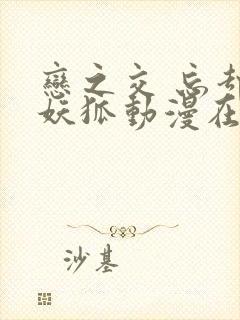 戀之交 忘却
妖狐動漫在
沙基